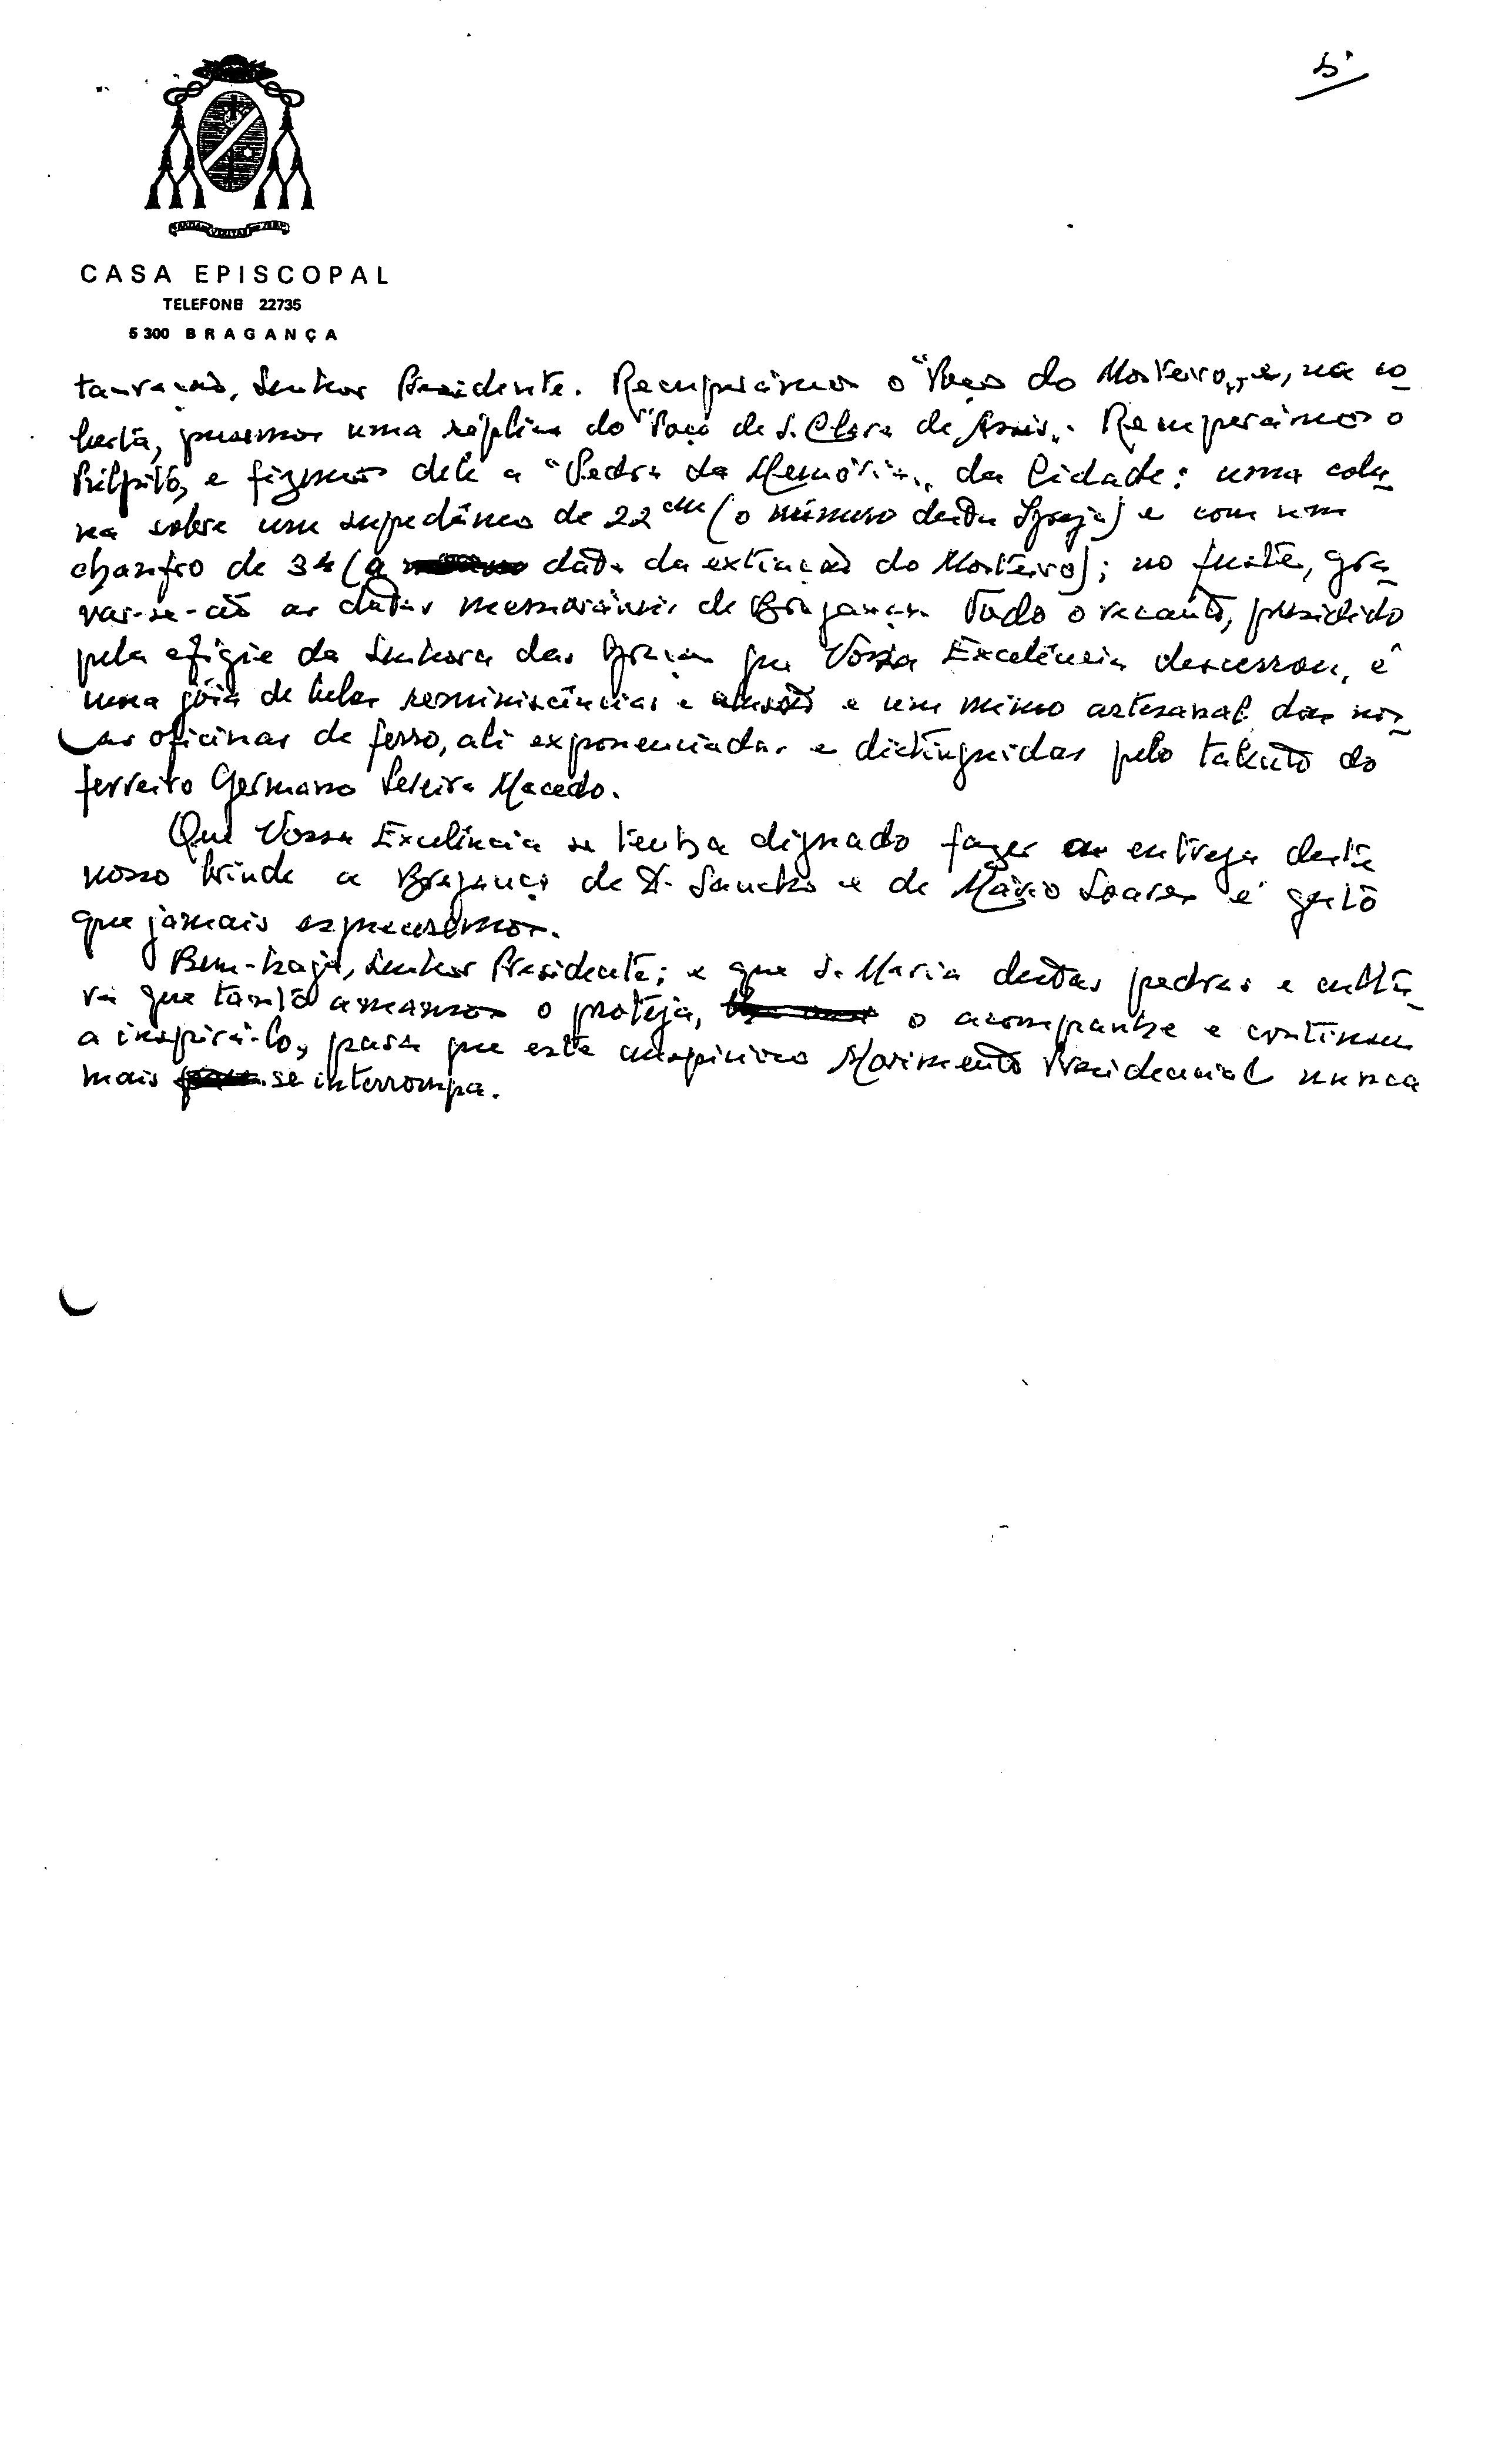 5
CASA EPISCOPAL
TELEFONE 22735
5300 BRAGANÇA
tauração, Senhor Presidente. Recuperámos o "Poço do Mosteiro„ e, na co
berta, pusemos uma réplica do "Poço de S. Clara de Assis„. Recuperámos o
Púlpito, e fizemos dele a "Pedra da Memória„ da Cidade: uma colu
na sobre um supedâneo de 22 cm (o número desta Igreja) e com um
chanfro de 34 (a data da extinção do Mosteiro); no fuste, gra
var-se-ão as datas memoráveis de Bragança. Todo o recanto, presidido
pela efígie da Senhora das Graças que Vossa Excelência descerrou, é
uma jóia de belas reminiscências e e um mimo artesanal das nos
sas oficinas de ferro, ali exponenciadas e distinguidas pelo talento do
ferreiro Germano Pereira Macedo.
Que Vossa Excelência se tenha dignado fazer a entrega deste
nosso brinde a Bragança de D. Sancho e de Mário Soares é gesto
que jamais esqueceremos.
Bem-haja, Senhor Presidente; e que S. Maria destas pedras e cultu
ra que tanto amamos o proteja, o acompanhe e continue
a inspirá-lo, para que este auspicioso Movimento Presidencial nunca
mais se interrompa.